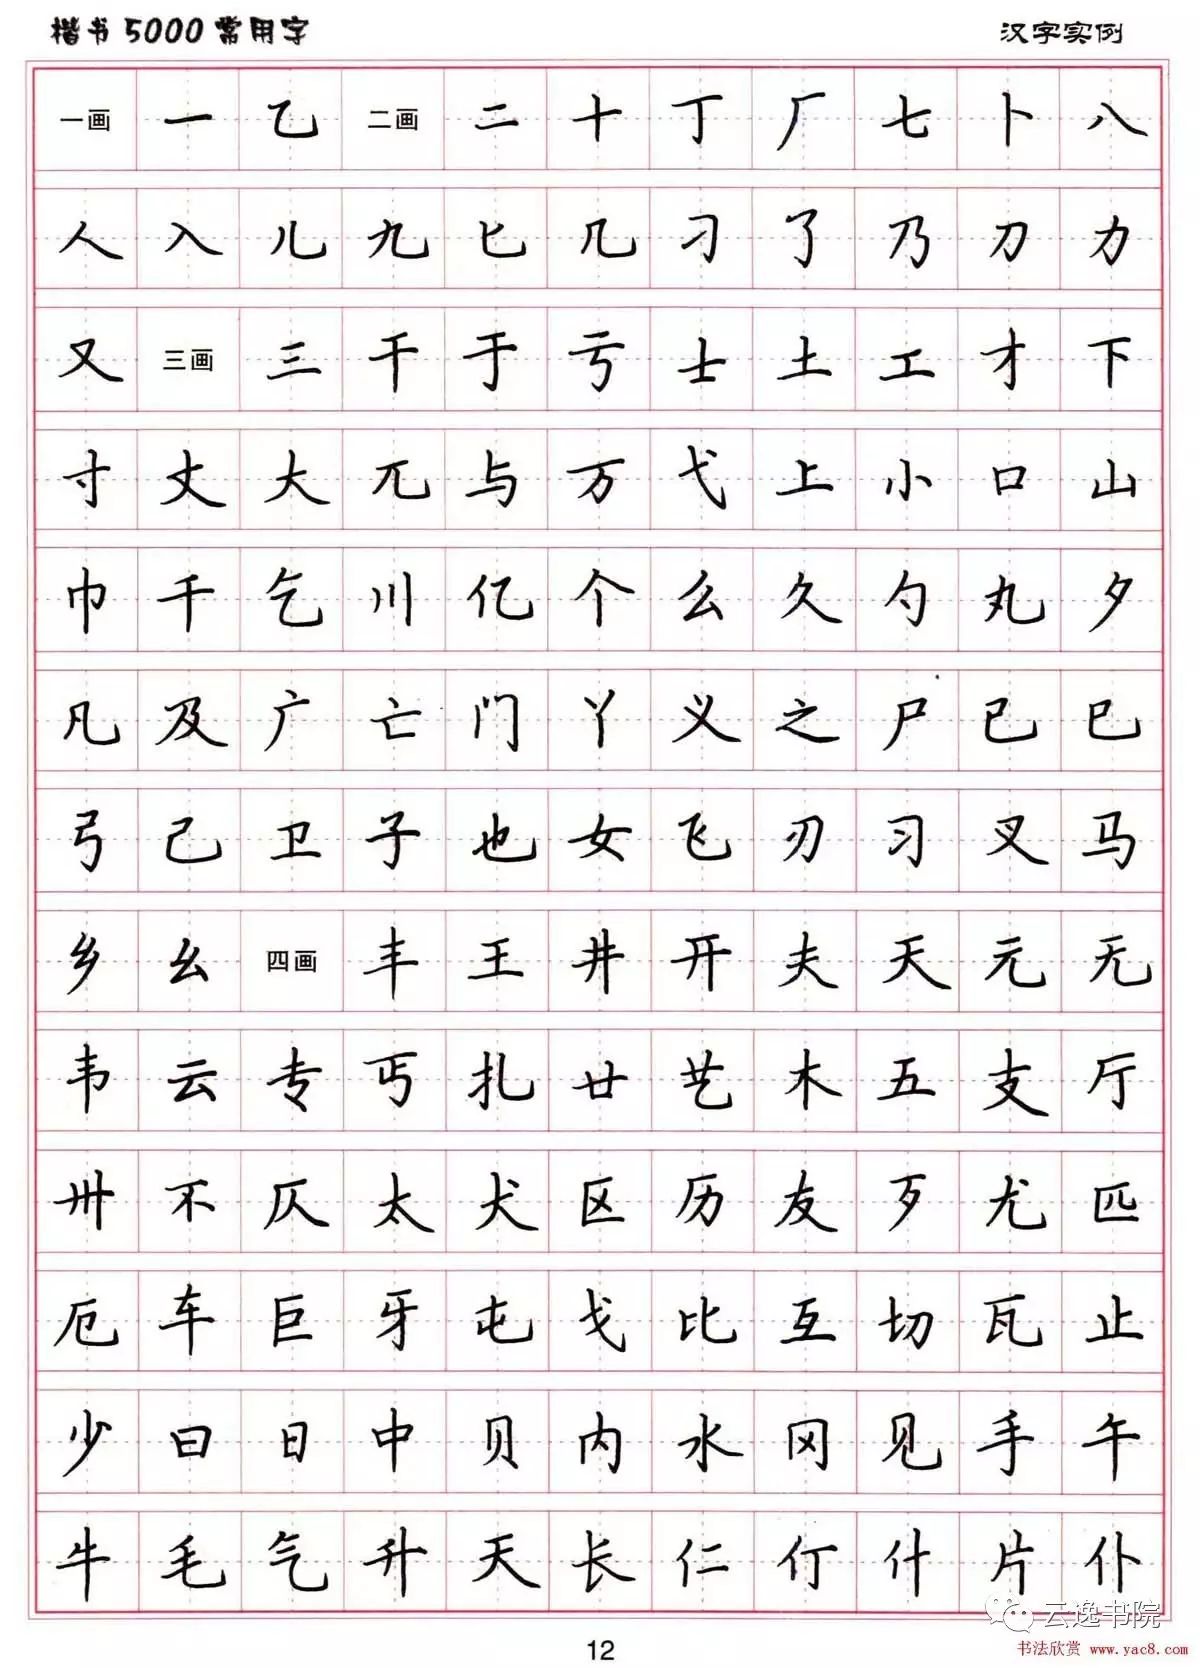 楷书5000常用字 汉字实例
一画 一 乙 二画 二 十 丁 厂 七 卜 八
人 入 儿 九 匕 几 刁 了 乃 刀 力
又 三画 三 干 于 亏 士 土 工 才 下
寸 丈 大 兀 与 万 弋 上 小 口 山
巾 千 乞 川 亿 个 么 久 勺 丸 夕
凡 及 广 亡 门 丫 义 之 尸 已 巳
弓 己 卫 子 也 女 飞 刃 习 叉 马
乡 幺 四画 丰 王 井 开 夫 天 元 无
韦 云 专 丐 扎 廿 艺 木 五 支 厅
卅 不 仄 太 犬 区 历 友 歹 尤 匹
厄 车 巨 牙 屯 戈 比 互 切 瓦 止
少 曰 日 中 贝 内 水 冈 见 手 午
牛 毛 气 升 夭 长 仁 仃 什 片 仆
云逸书院
12
书法欣赏 www.yac8.com